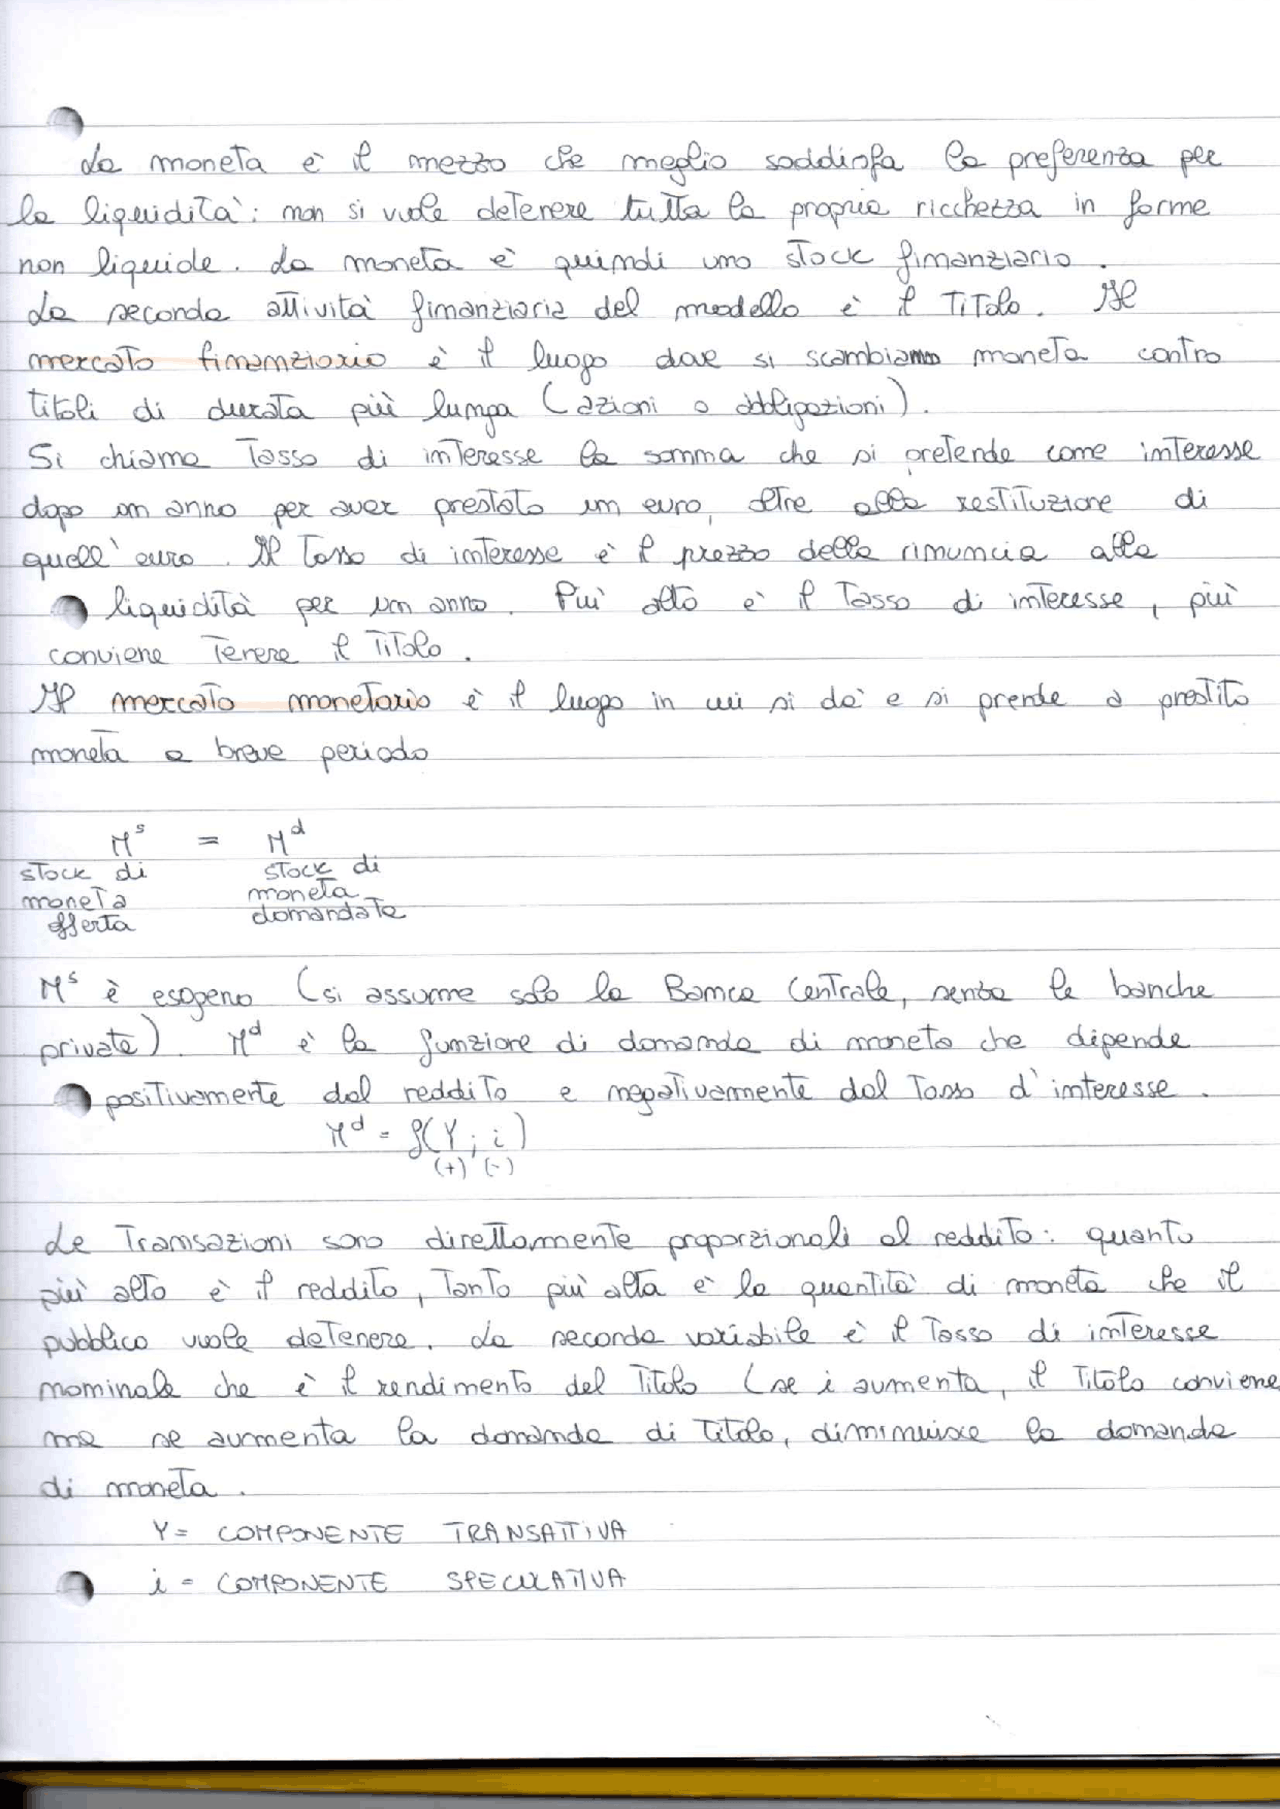 La moneta è il mezzo che meglio soddisfa la preferenza per
la liquidità: non si vuole detenere tutta la propria ricchezza in forme
non liquide. La moneta è quindi uno stock finanziario.
La seconda attività finanziaria del modello è il titolo. Il
mercato finanziario è il luogo dove si scambiano moneta contro
titoli di durata più lunga (azioni o obbligazioni).
Si chiama tasso di interesse la somma che si pretende come interesse
dopo un anno per aver prestato un euro, oltre alla restituzione di
quell'euro. Il tasso di interesse è il prezzo della rinuncia alla
liquidità per un anno. Più alto è il tasso di interesse, più
conviene tenere il titolo.
Il mercato monetario è il luogo in cui si dà e si prende a prestito
moneta a breve periodo
M^s = M^d
stock di stock di
moneta moneta
offerta domandata
M^s è esogeno (si assume solo la Banca Centrale, senza le banche
private). M^d è la funzione di domanda di moneta che dipende
positivamente dal reddito e negativamente dal tasso d'interesse.
M^d = f(Y; i)
(+) (-)
Le transazioni sono direttamente proporzionali al reddito: quanto
più alto è il reddito, tanto più alta è la quantità di moneta che il
pubblico vuole detenere. La seconda variabile è il tasso di interesse
nominale che è il rendimento del titolo (se i aumenta, il titolo conviene,
ma se aumenta la domanda di titolo, diminuisce la domanda
di moneta.
Y = COMPONENTE TRANSATTIVA
i = COMPONENTE SPECULATIVA